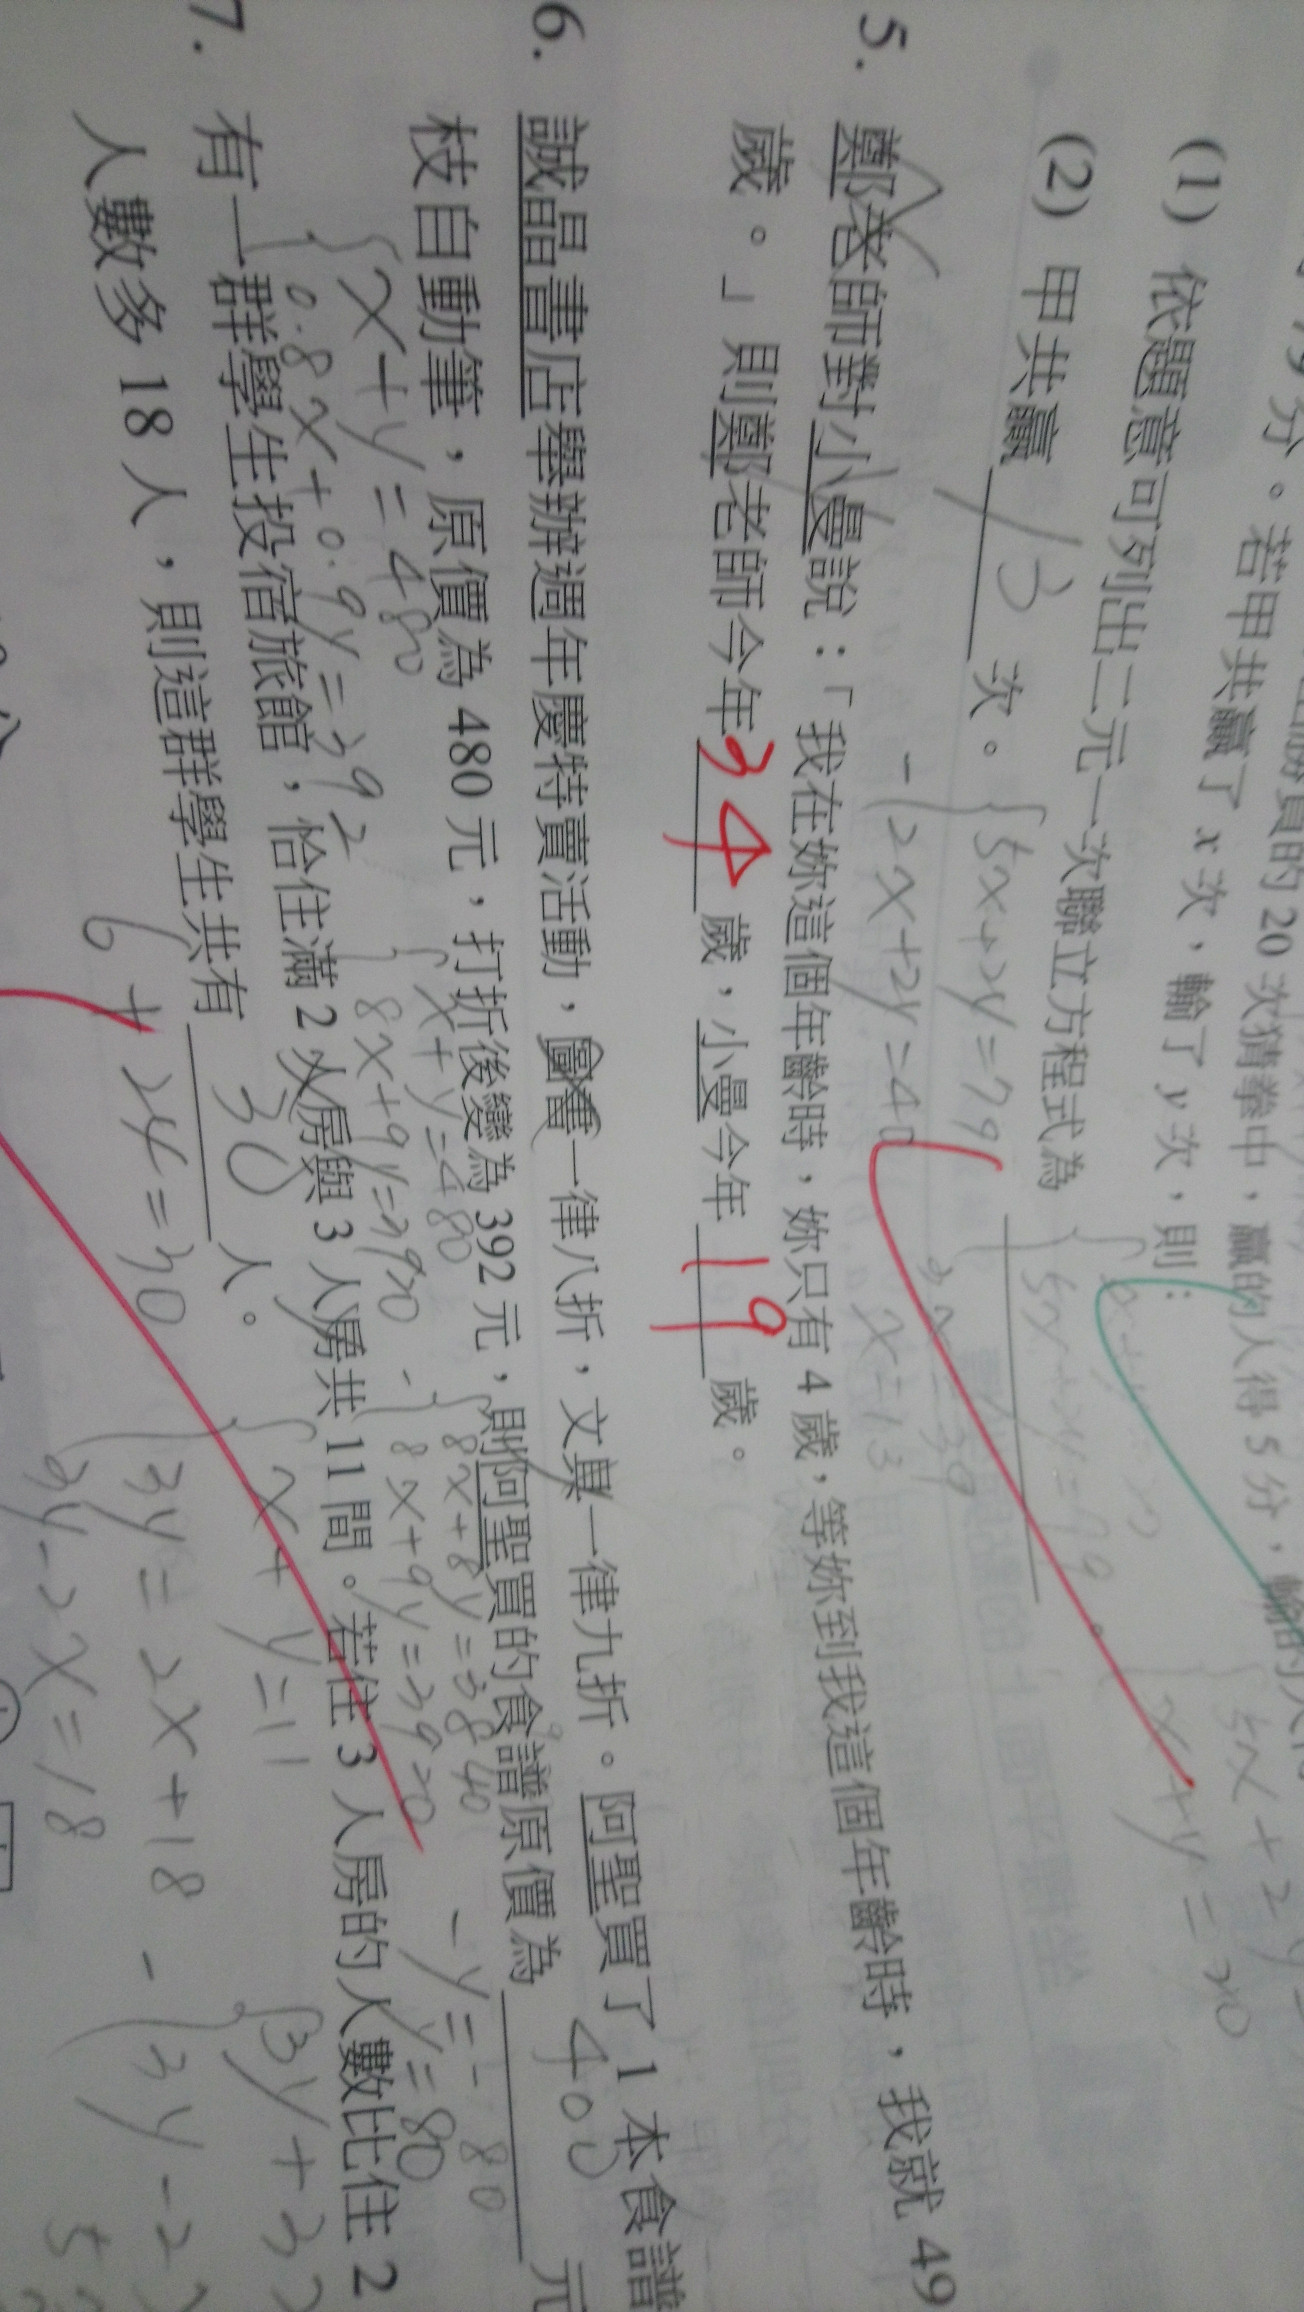 79分。若甲共贏了 x 次，輸了 y 次，則：
(1) 依題意可列出二元一次聯立方程式為
(2) 甲共贏 13 次。
5x+2y=79
2x+2y=40
3x=39
x=13
x+y=20
5. 鄭老師對小曼說：「我在妳這個年齡時，妳只有 4 歲，等妳到我這個年齡時，我就 49
歲。」則鄭老師今年 34 歲，小曼今年 19 歲。
6. 誠晶書店舉辦週年慶特賣活動，圖書一律八折，文具一律九折。阿聖買了 1 本食譜
枝自動筆，原價為 480 元，打折後變為 392 元，則阿聖買的食譜原價為 400 元
x+y=480
0.8x+0.9y=392
x+y=480
8x+9y=3920
8x+8y=3840
8x+9y=3920
-y=-80
y=80
7. 有一群學生投宿旅館，恰住滿 2 人房與 3 人房共 11 間。若住 3 人房的人數比住 2
人數多 18 人，則這群學生共有 30 人。
6+24=30
x+y=11
3y=2x+18
3y-2x=18